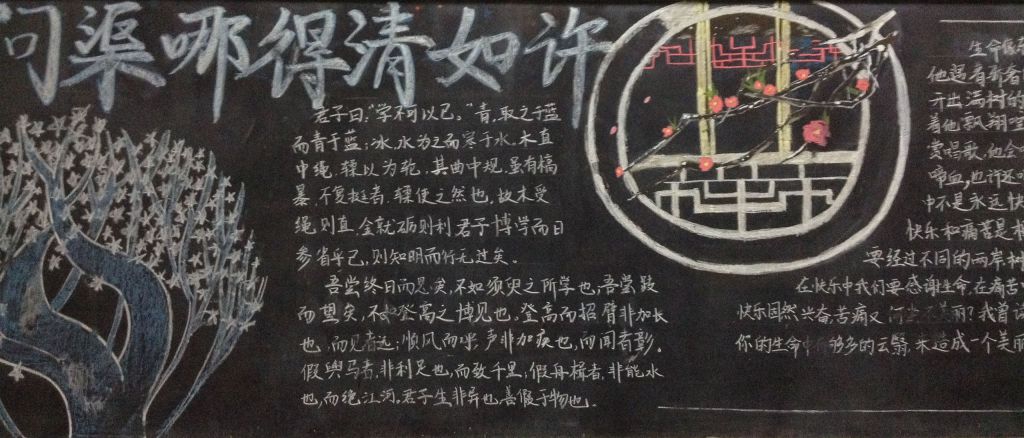 问渠哪得清如许
君子曰:“学不可以已。”青,取之于蓝
而青于蓝;冰,水为之而寒于水。木直
中绳,輮以为轮,其曲中规,虽有槁
暴,不复挺者,輮使之然也,故木受
绳则直,金就砺则利君子博学而日
参省乎己,则知明而行无过矣。
吾尝终日而思矣,不如须臾之所学也,吾尝跂
而望矣,不如登高之博见也。登高而招,臂非加长
也,而见者远;顺风而呼,声非加疾也,而闻者彰。
假舆马者,非利足也,而致千里,假舟楫者,非能水
也,而绝江河,君子生非异也,善假于物也。
生命似
他遇着新者
开出满树的
着他飘翔喧
赏唱歌,他会
啼血,也许还
中不是永远快
快乐和痛苦是相
要经过不同的两岸
在快乐中我们要感谢生命,在痛苦
快乐固然兴奋,苦痛又何尝不美丽?我曾读
你的生命中有够多的云翳,来造成一个美丽